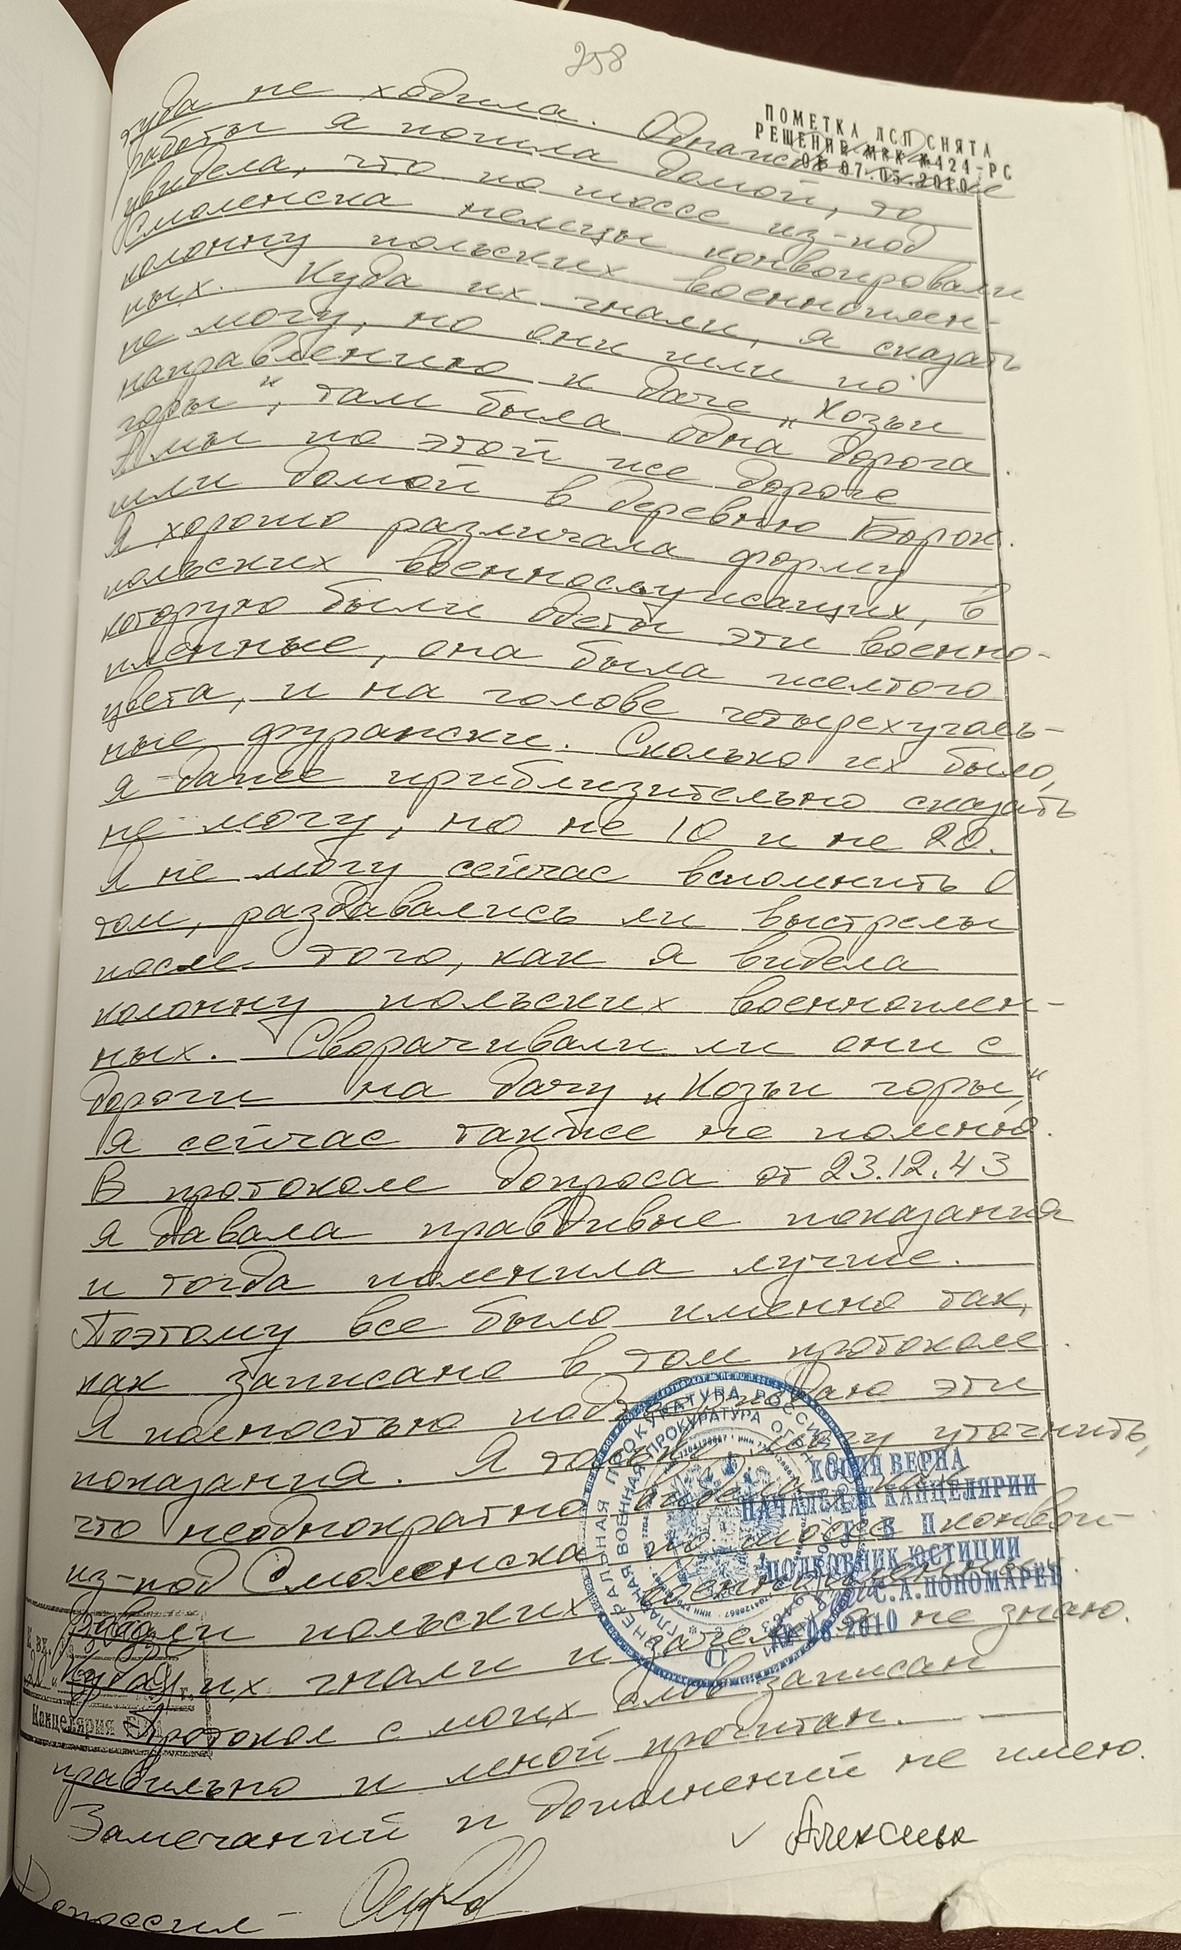 258
ПОМЕТКА ДСП СНЯТА
РЕШЕНИЕ МВК №424-РС
ОТ 07.05.2010
туда не ходила. Однажды
работы я пошла домой, то
увидела, что по шоссе из-под
Смоленска немцы конвоировали
колонну польских военноплен-
ных. Куда их гнали, я сказать
не могу, но они шли по
направлению к даче „Козьи
горы", там была одна дорога.
А мы по этой же дороге
шли домой в деревню Борок.
Я хорошо различала форму
польских военнослужащих, в
которую были одеты эти военно-
пленные, она была желтого
цвета, и на голове четырехуголь-
ные фуражки. Сколько их было,
я даже приблизительно сказать
не могу, но не 10 и не 20.
Я не могу сейчас вспомнить о
том, раздавались ли выстрелы
после того, как я видела
колонну польских военноплен-
ных. Сворачивали ли они с
дороги на дачу „Козьи горы"
я сейчас также не помню.
В протоколе допроса от 23.12.43
я давала правдивые показания
и тогда помнила лучше.
Поэтому все было именно так,
как записано в том протоколе.
Я полностью подтверждаю эти
показания. Я только могу уточнить,
что неоднократно видела, как
из-под Смоленска по шоссе конвои-
ровали польских военнопленных.
Куда их гнали и зачем, я не знаю.
Протокол с моих слов записан
правильно и мной прочитан.
Замечаний и дополнений не имею.
Допросил -
ГЕНЕРАЛЬНАЯ ПРОКУРАТУРА РОССИЙ
ГЛАВНАЯ ВОЕННАЯ ПРОКУРАТУРА
КОПИЯ ВЕРНА
НАЧАЛЬНИК КАНЦЕЛЯРИИ
Г В П
ПОЛКОВНИК ЮСТИЦИИ
С.А.ПОНОМАРЕВ
06 2010
Канцелярия